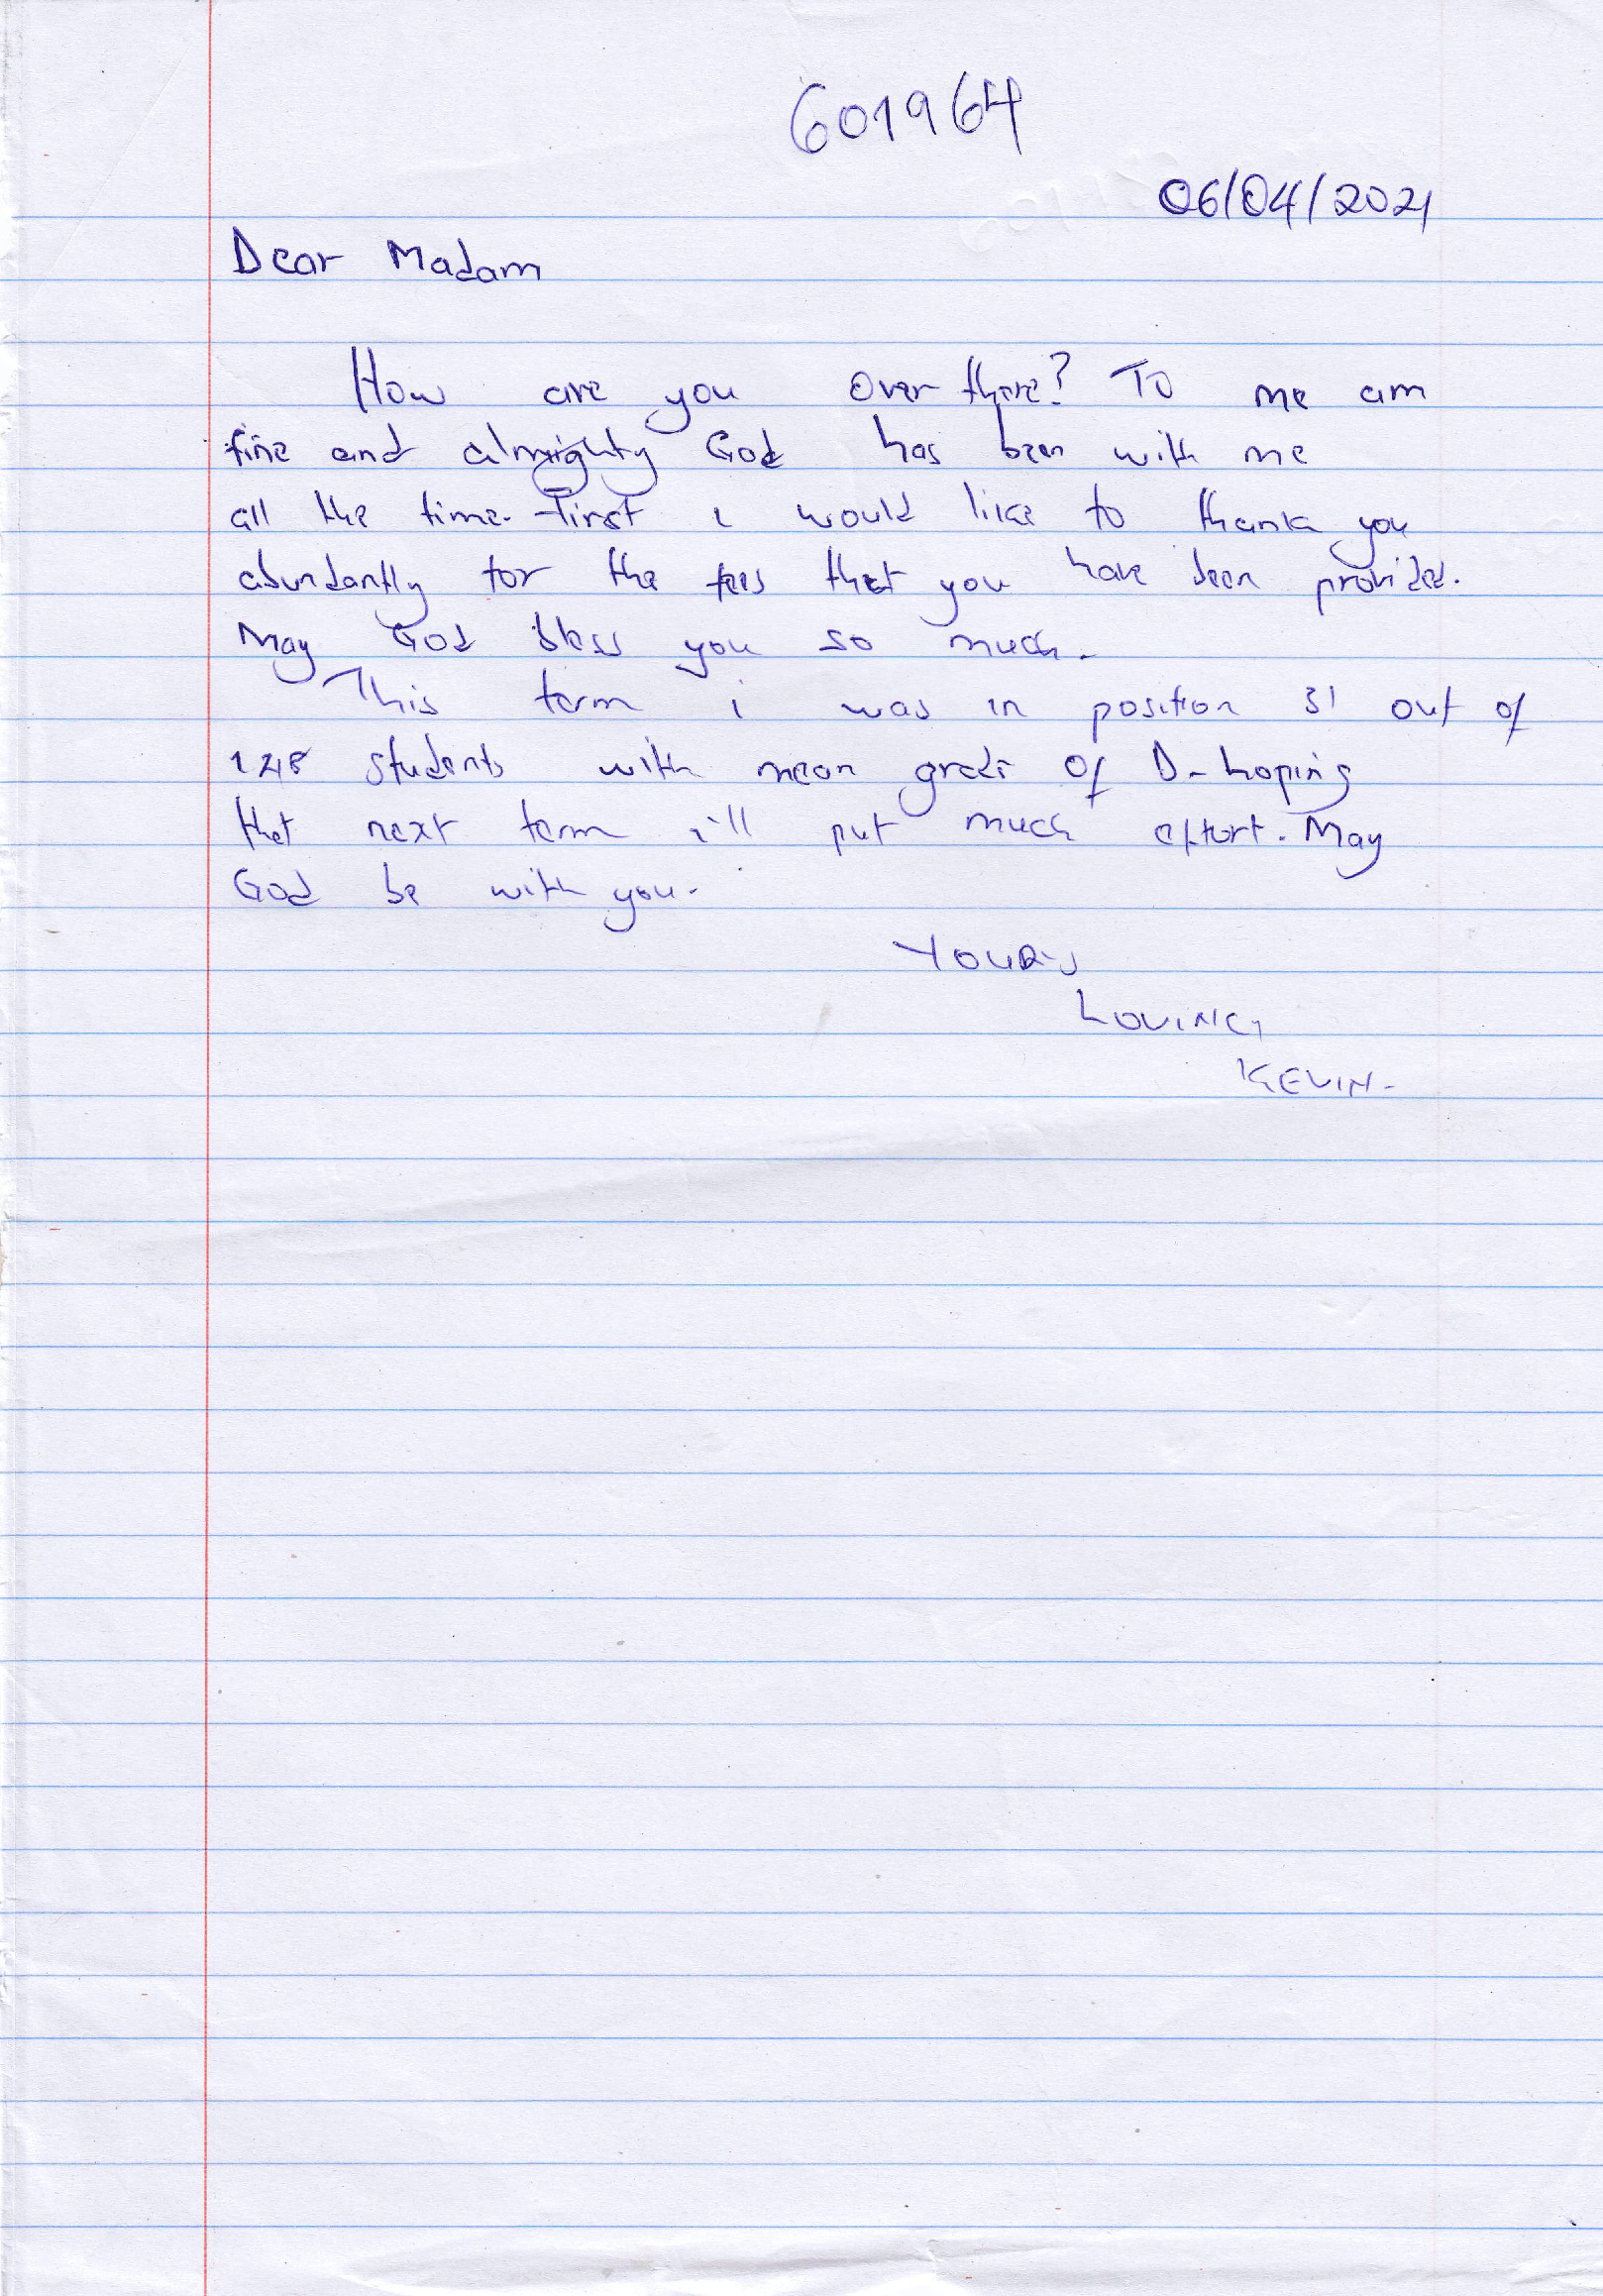 601964
06/04/2021
Dear Madam
How are you over there? To me am
fine and almighty God has been with me
all the time. First i would like to thank you
abundantly for the fees that you have been provided.
May God bless you so much.
This term i was in position 31 out of
148 students with mean grade of D- hoping
that next term i'll put much effort. May
God be with you.
YOURS
LOVING
KEVIN.